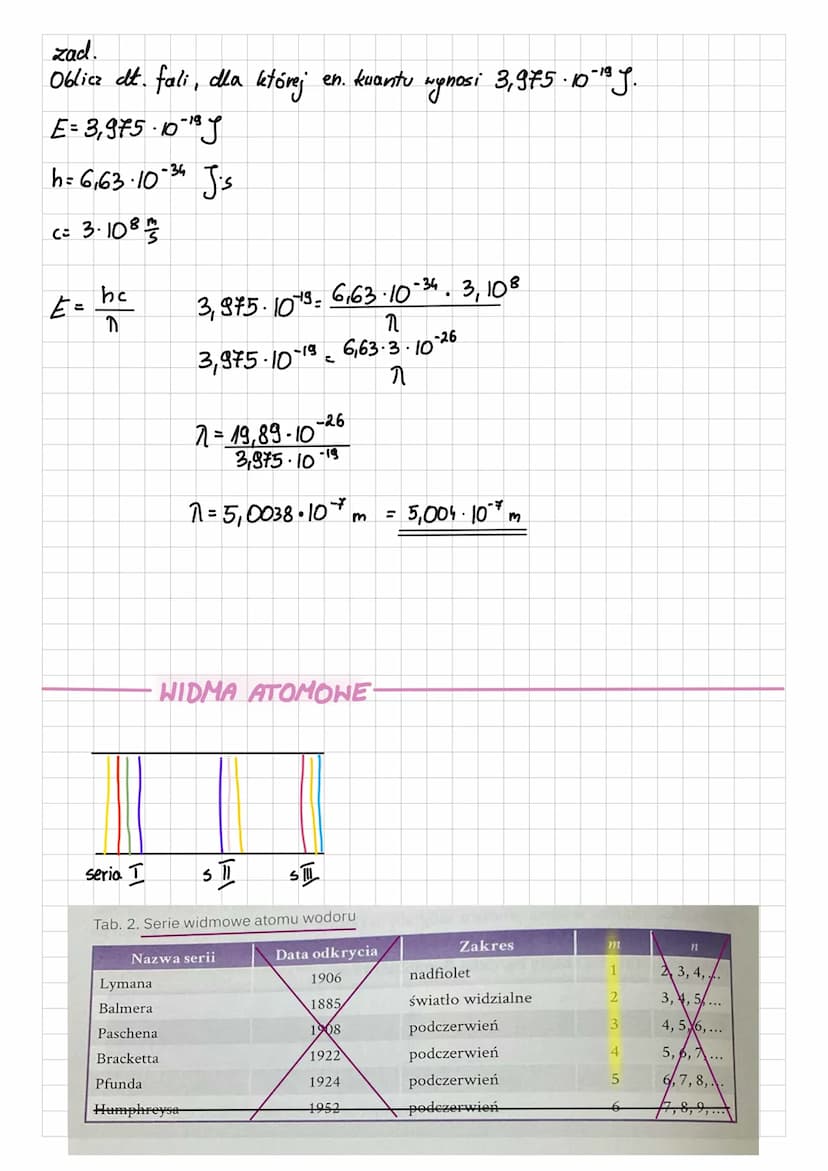 zad.
Oblicz dł. fali, dla której en. kwantu wynosi 3,975 · 10⁻¹⁹ J.
E = 3,975 · 10⁻¹⁹ J
h = 6,63 · 10⁻³⁴ J·s
c = 3 · 10⁸ m/s
E = hc/λ
3,975 · 10⁻¹⁹ = 6,63 · 10⁻³⁴ · 3, 10⁸ / λ
3,975 · 10⁻¹⁹ = 6,63 · 3 · 10⁻²⁶ / λ
λ = 19,89 · 10⁻²⁶ / 3,975 · 10⁻¹⁹
λ = 5,0038 · 10⁻⁷ m = 5,004 · 10⁻⁷ m
WIDMA ATOMOWE
seria I s II s III
Tab. 2. Serie widmowe atomu wodoru
Nazwa serii Data odkrycia Zakres m n
Lymana 1906 nadfiolet 1 2, 3, 4, ...
Balmera 1885 światło widzialne 2 3, 4, 5, ...
Paschena 1908 podczerwień 3 4, 5, 6, ...
Bracketta 1922 podczerwień 4 5, 6, 7, ...
Pfunda 1924 podczerwień 5 6, 7, 8, ...
Humphreysa 1952 podczerwień 6 7, 8, 9, ...